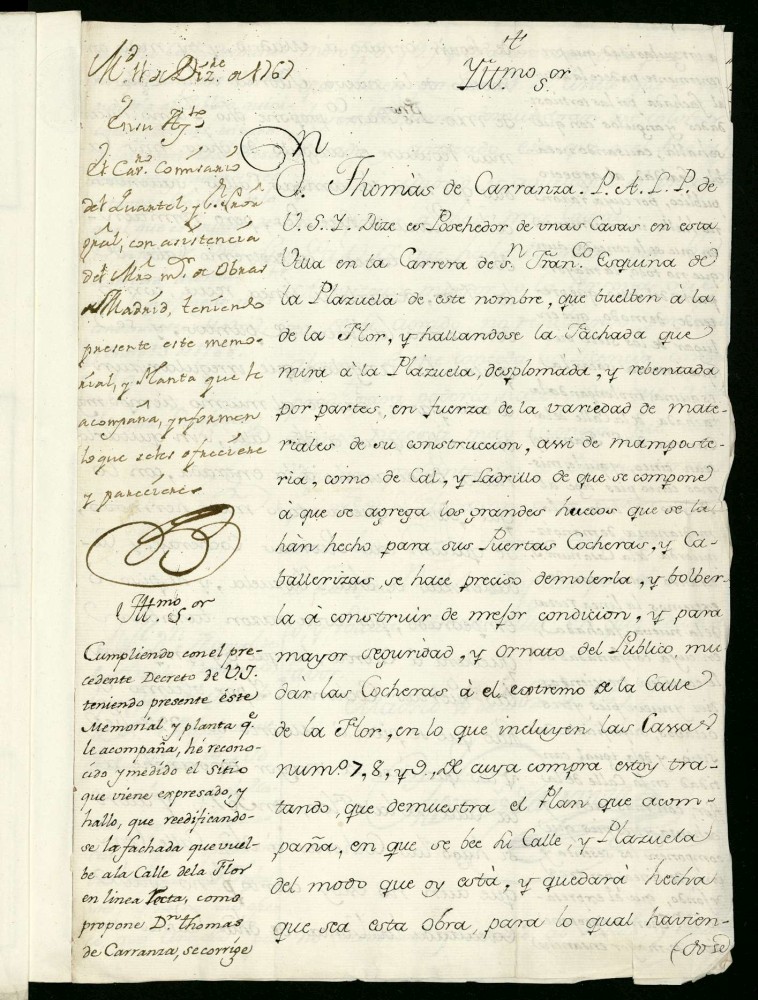 M.d 11 de Diz.re de 1767
En su Ay.to
El Cav.ro Comisario
del Quartel, y
pral, con asistencia
del Mro m.r de Obras
de Madrid, teniendo
presente este memo-
rial, y Planta que le
acompaña, ynformen
lo que seles ofreciere
y pareciere
Yll.mo S.or
Cumpliendo con el pre-
cedente Decreto de V.I.
teniendo presente éste
Memorial y planta q.e
le acompaña, hé recono-
cido y medido el sitio
que viene expresado, y
hallo, que reedificando-
se la fachada que vuel-
be a la Calle dela Flor
en linea recta, como
propone D.n Thomas
de Carranza, se corrige
Yll.mo S.or
D.n Thomàs de Carranza. P. A. L. P. de
V. S. Y. Dize es Posehedor de vnas Casas en esta
Villa en la Carrera de S.n Fran.co Esquina de
la Plazuela de este nombre, que buelben à la
de la Flor, y hallandose la Fachada que
mira à la Plazuela, desplomada, y rebentada
por partes, en fuerza de la variedad de mate-
riales de su construccion, assi de mamposte-
ria, como de Cal, y Ladrillo de que se compone
à que se agrega los grandes huecos que se la
hàn hecho para sus Puertas Cocheras, y Ca-
ballerizas, se hace preciso demolerla, y bolber
la à construir de mejor condicion, y para
mayor seguridad, y ornato del Publico, mu
dàr las Cocheras à el extremo de la Calle
de la Flor, en lo que incluyen las Casas
num.o 7, 8, y 9, de cuya compra estoy tra-
tando, que demuestra el Plan que acom-
paña, en que se bee su Calle, y Plazuela
del modo que oy està, y quedarà hecha
que sea esta Obra, para lo qual havien-
do se